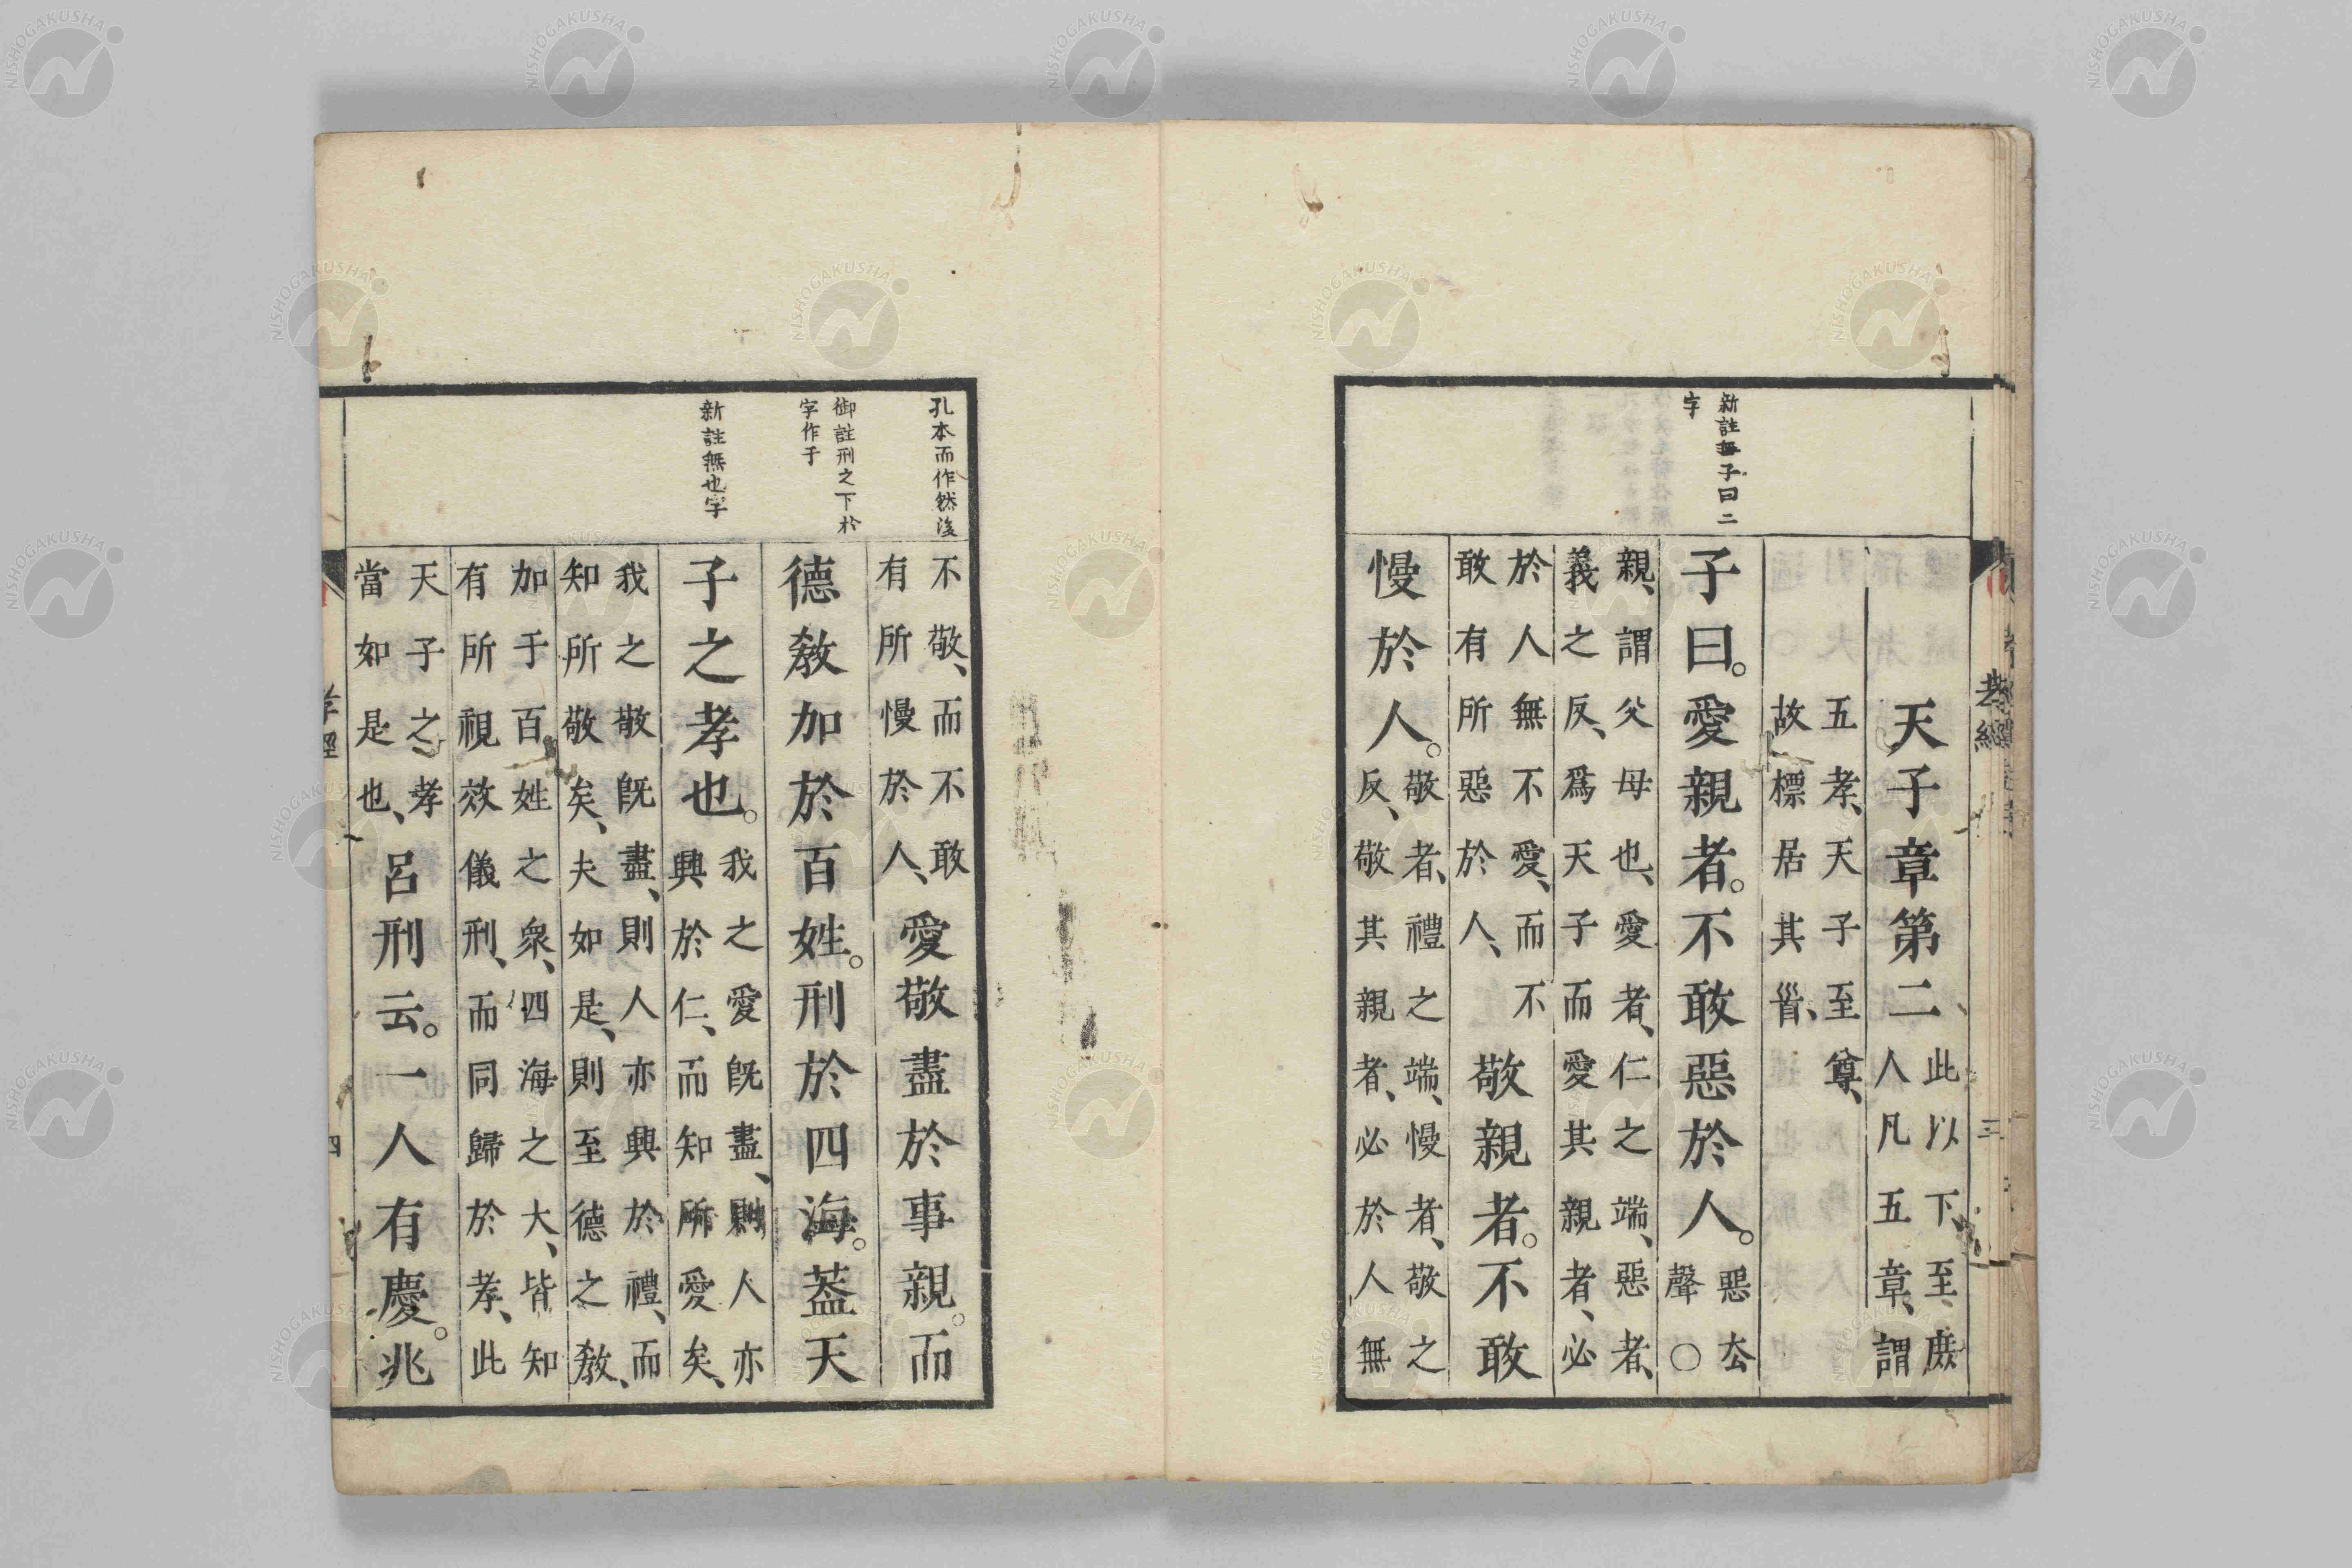 孝經 三
新註無子曰二
字
天子章第二此以下至庶
人凡五章、謂
五孝、天子至尊、
故標居其首、
子曰。愛親者。不敢惡於人。惡去
聲○
親、謂父母也、愛者、仁之端、惡者、
義之反、爲天子而愛其親者、必
於人無不愛、而不
敢有所惡於人、敬親者。不敢
慢於人。敬者、禮之端、慢者、敬之
反、敬其親者、必於人無
孔本而作然後
御註刑之下於
字作于
新註無也字
不敬、而不敢
有所慢於人、愛敬盡於事親。而
德敎加於百姓。刑於四海。葢天
子之孝也。我之愛旣盡、則人亦
興於仁、而知所愛矣、
我之敬旣盡、則人亦興於禮、而
知所敬矣、夫如是、則至德之敎、
加于百姓之衆、四海之大、皆知
有所視效儀刑、而同歸於孝、此
天子之孝
當如是也、呂刑云。一人有慶。兆
孝經 四
NISHOGAKUSHA